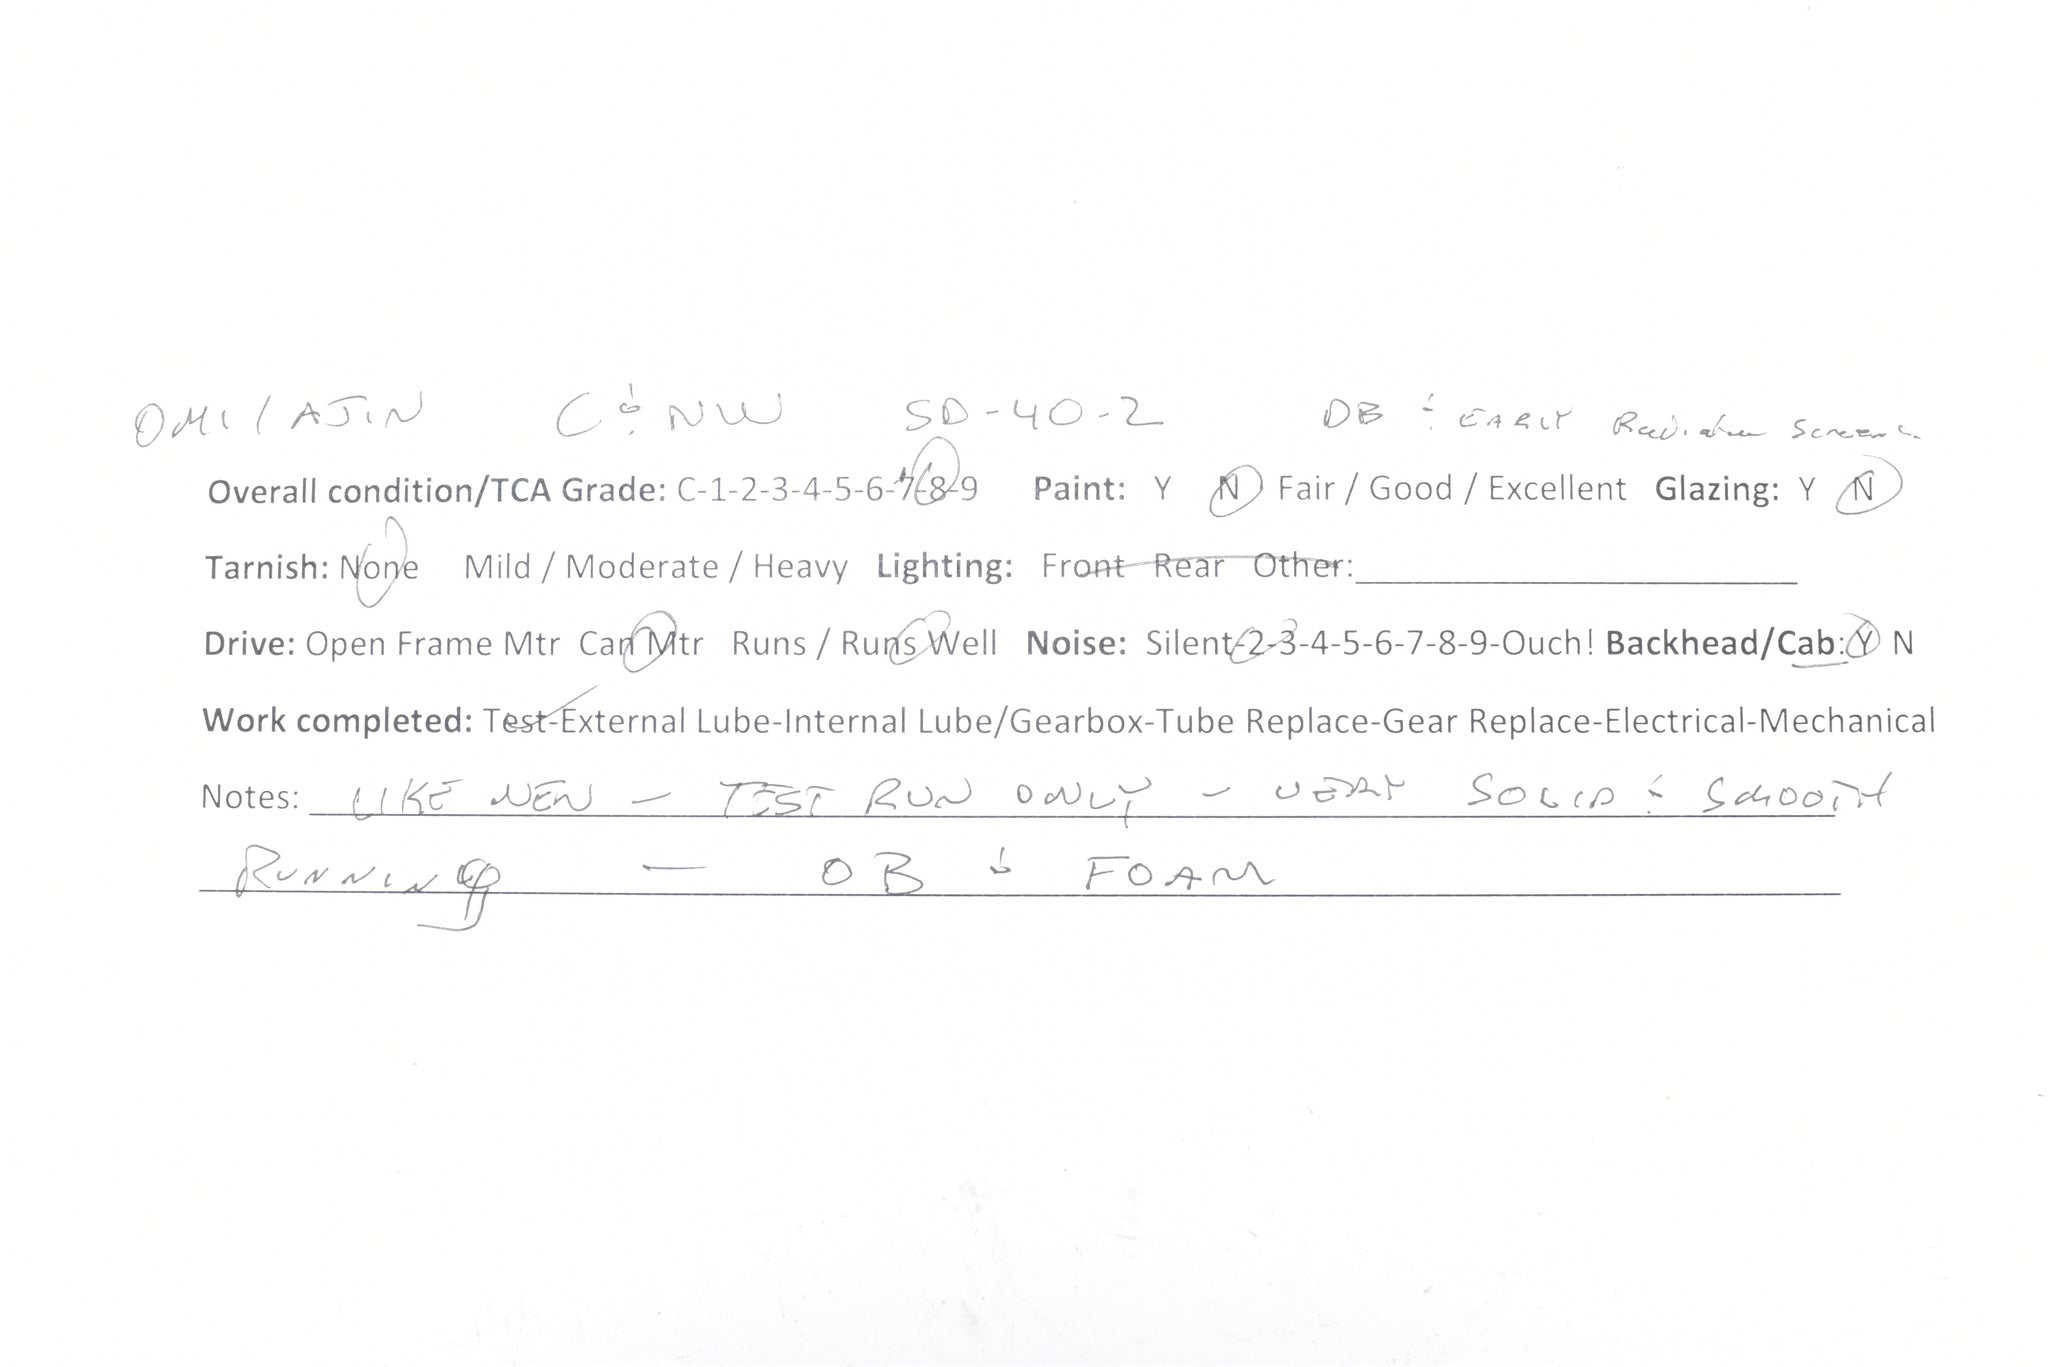 OMI / AJIN C & NW SD-40-2 DB & EARLY Radiator Screens
Overall condition/TCA Grade: C-1-2-3-4-5-6-7-8-9 Paint: Y N Fair / Good / Excellent Glazing: Y N
Tarnish: None Mild / Moderate / Heavy Lighting: Front Rear Other:
Drive: Open Frame Mtr Can Mtr Runs / Runs Well Noise: Silent-2-3-4-5-6-7-8-9-Ouch! Backhead/Cab: Y N
Work completed: Test-External Lube-Internal Lube/Gearbox-Tube Replace-Gear Replace-Electrical-Mechanical
Notes: LIKE NEW — TEST RUN ONLY — VERY SOLID & SMOOTH
RUNNING — OB & FOAM